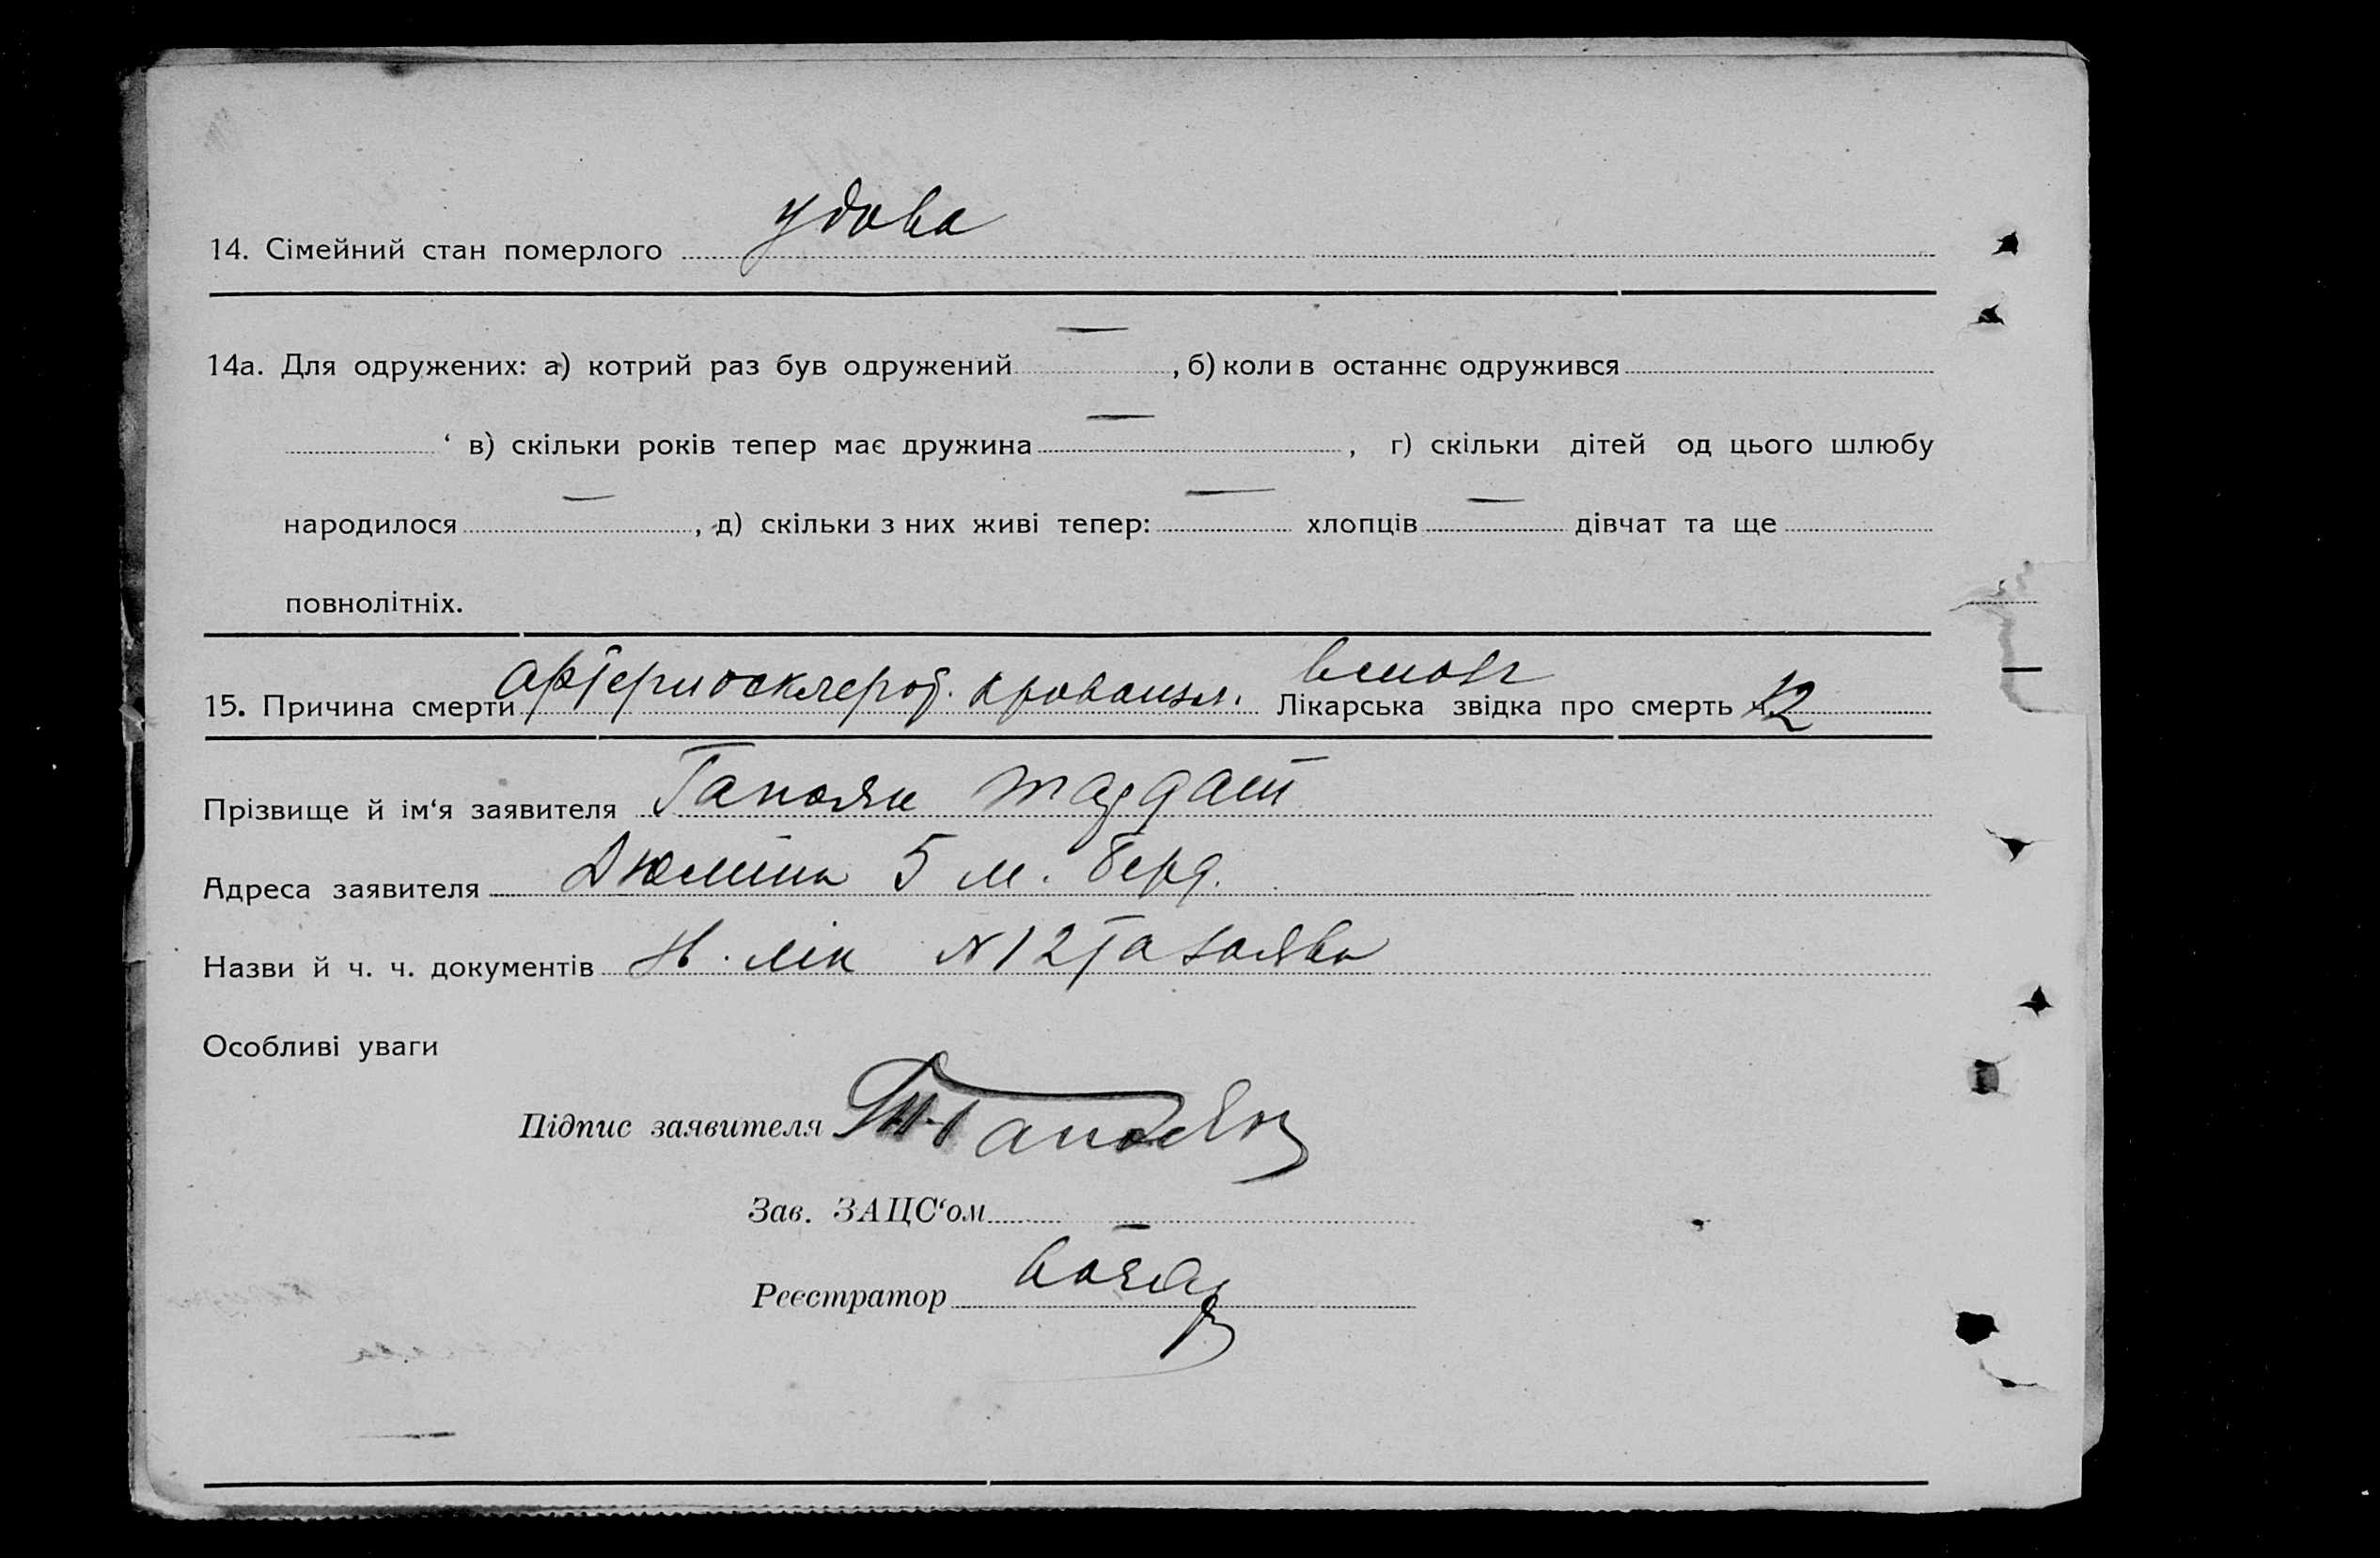 удова
14. Сімейний стан померлого
14а. Для одружених: а) котрий раз був одружений — , б) коли в останнє одружився
‘ в) скільки років тепер має дружина — , г) скільки дітей од цього шлюбу
народилося — , д) скільки з них живі тепер: — хлопців — дівчат та ще
повнолітніх.
15. Причина смерти артериосклероз. Лікарська звідка про смерть ч. 12
Прізвище й ім‘я заявителя
Адреса заявителя 5 м. Берд.
Назви й ч. ч. документів лік N 12 та заява
Особливі уваги
Підпис заявителя
Зав. ЗАЦС‘ом —
Реєстратор